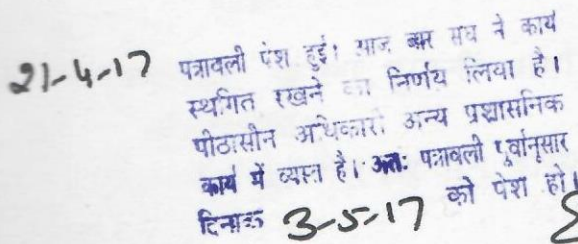 21-4-17 पत्रावली पेश हुई। आज बार संघ ने कार्य
स्थगित रखने का निर्णय लिया है।
पीठासीन अधिकारी अन्य प्रशासनिक
कार्य में व्यस्त है। अतः पत्रावली पूर्वानुसार
दिनांक 3-5-17 को पेश हो।